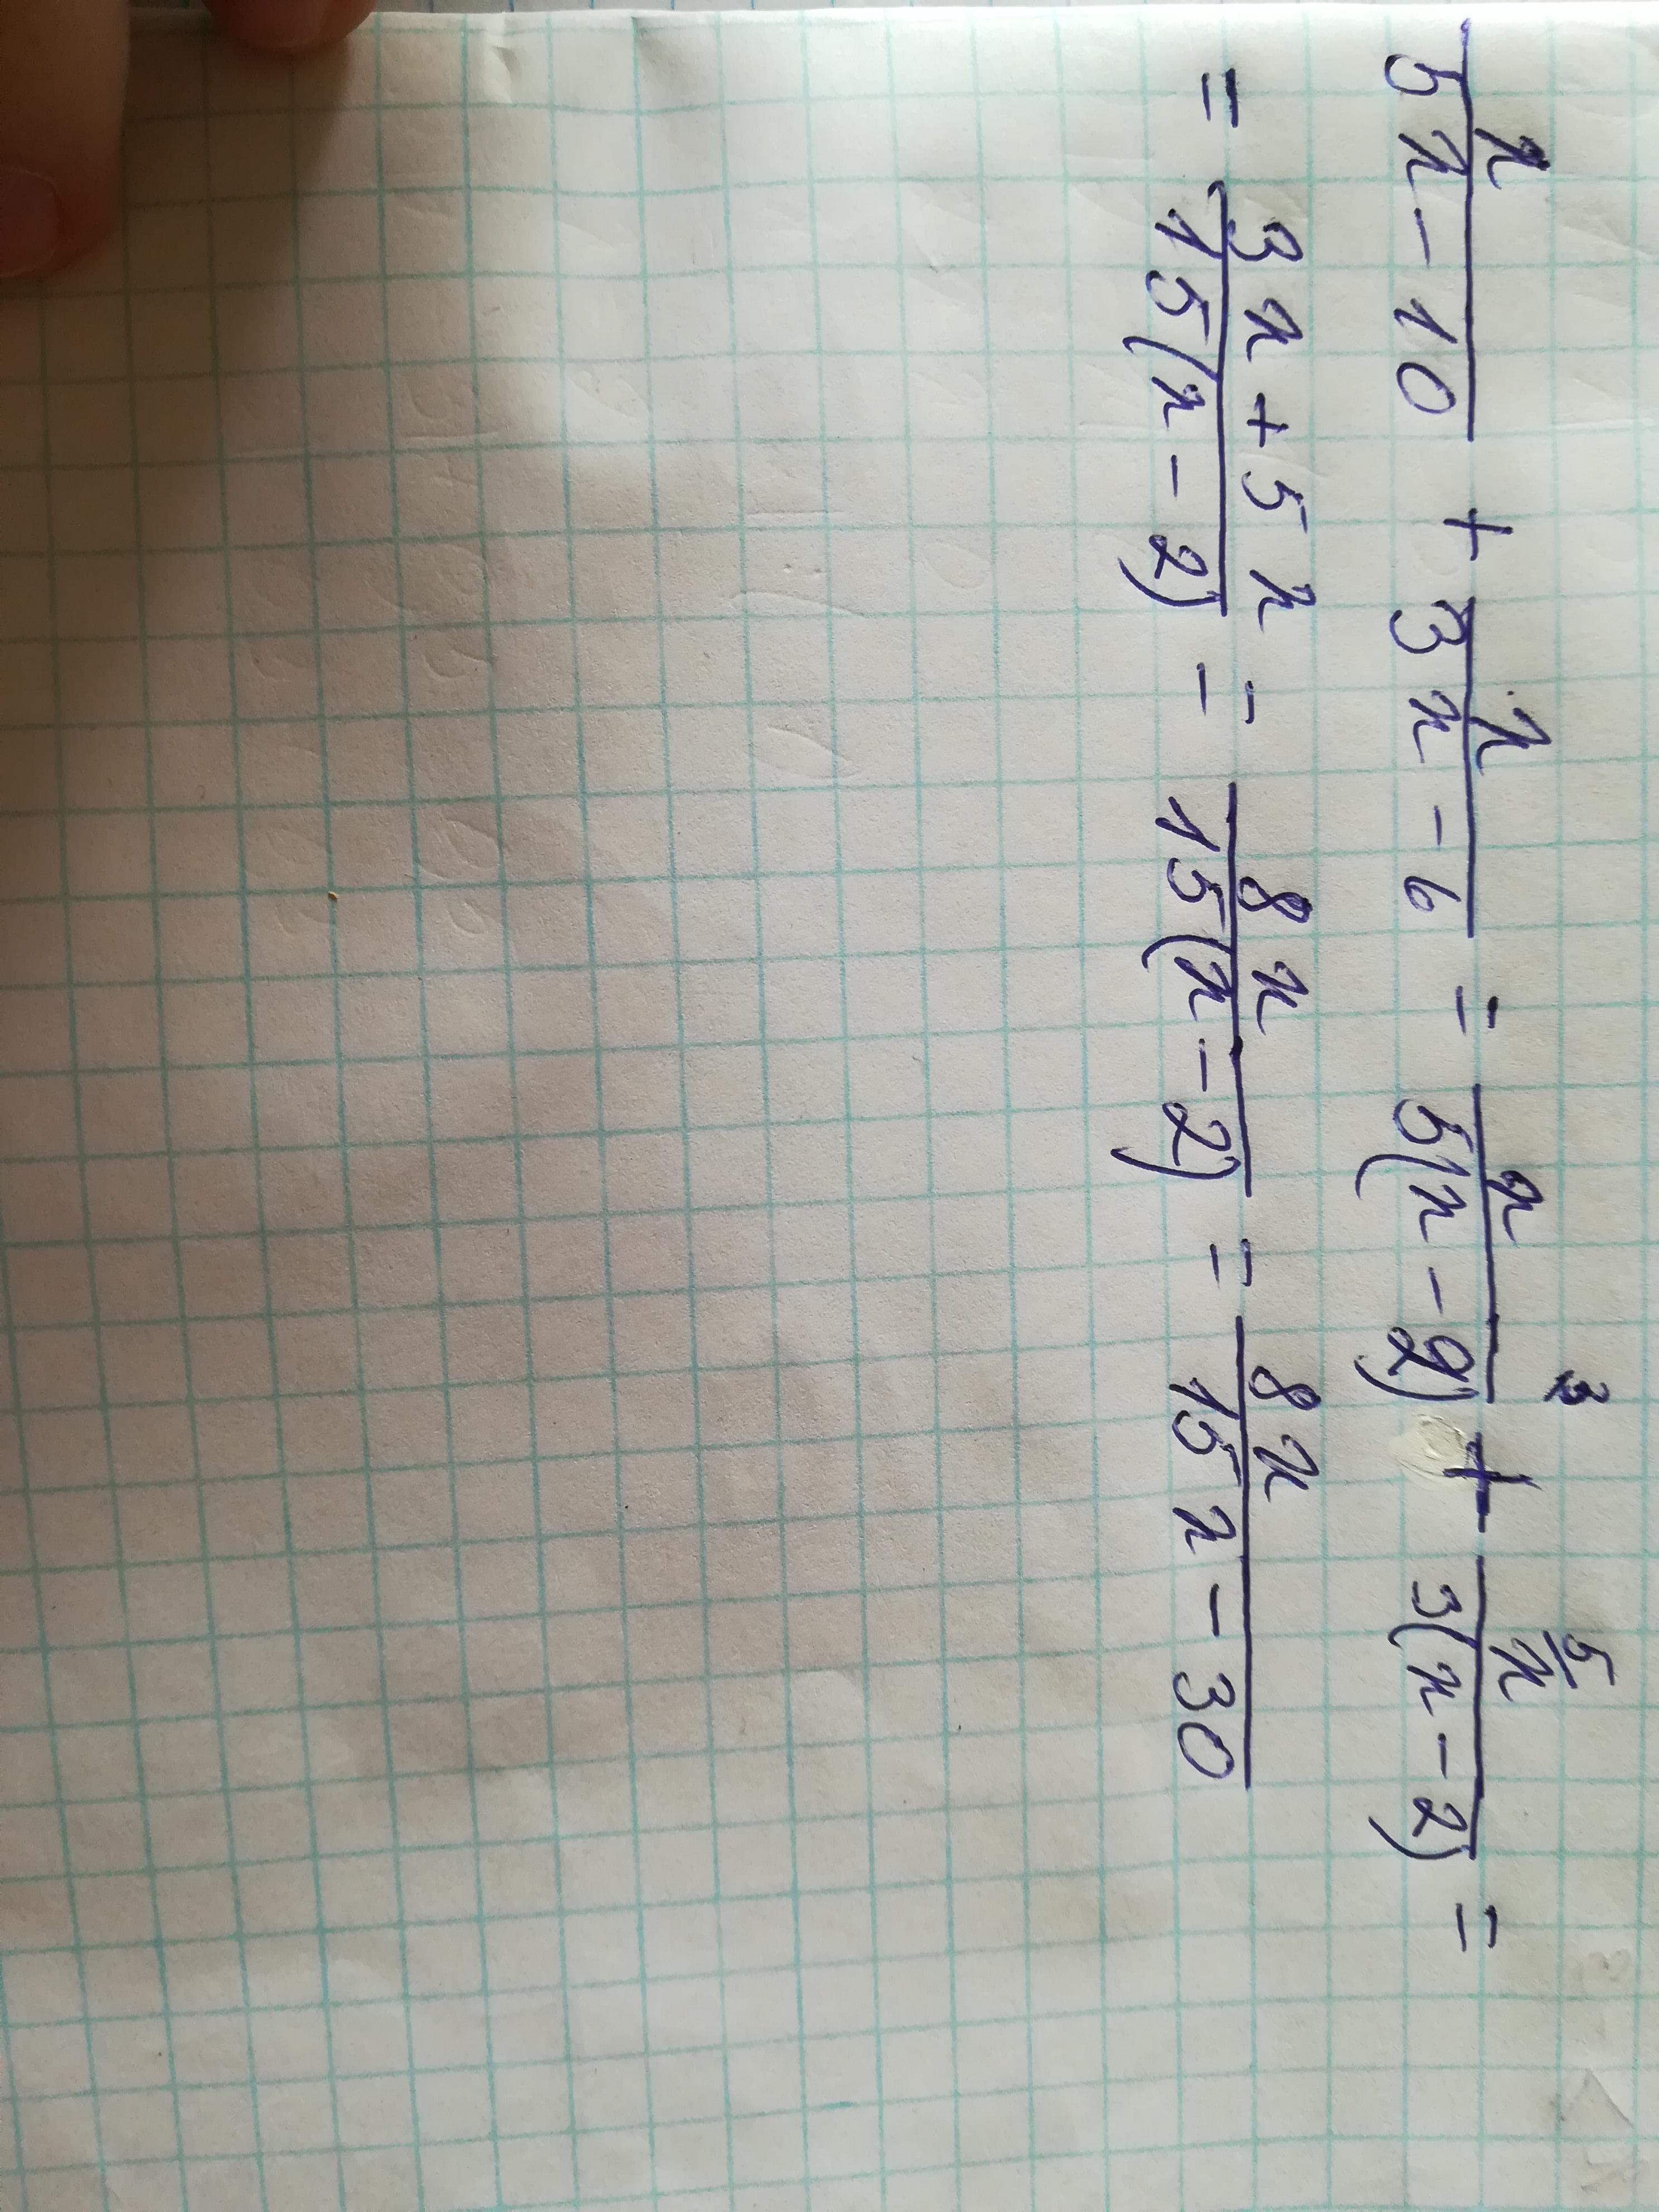 x/(5x-10) + x/(3x-6) = x/(5(x-2)) ³ + x/(3(x-2)) ⁵ =
= (3x+5x)/(15(x-2)) = 8x/(15(x-2)) = 8x/(15x-30)